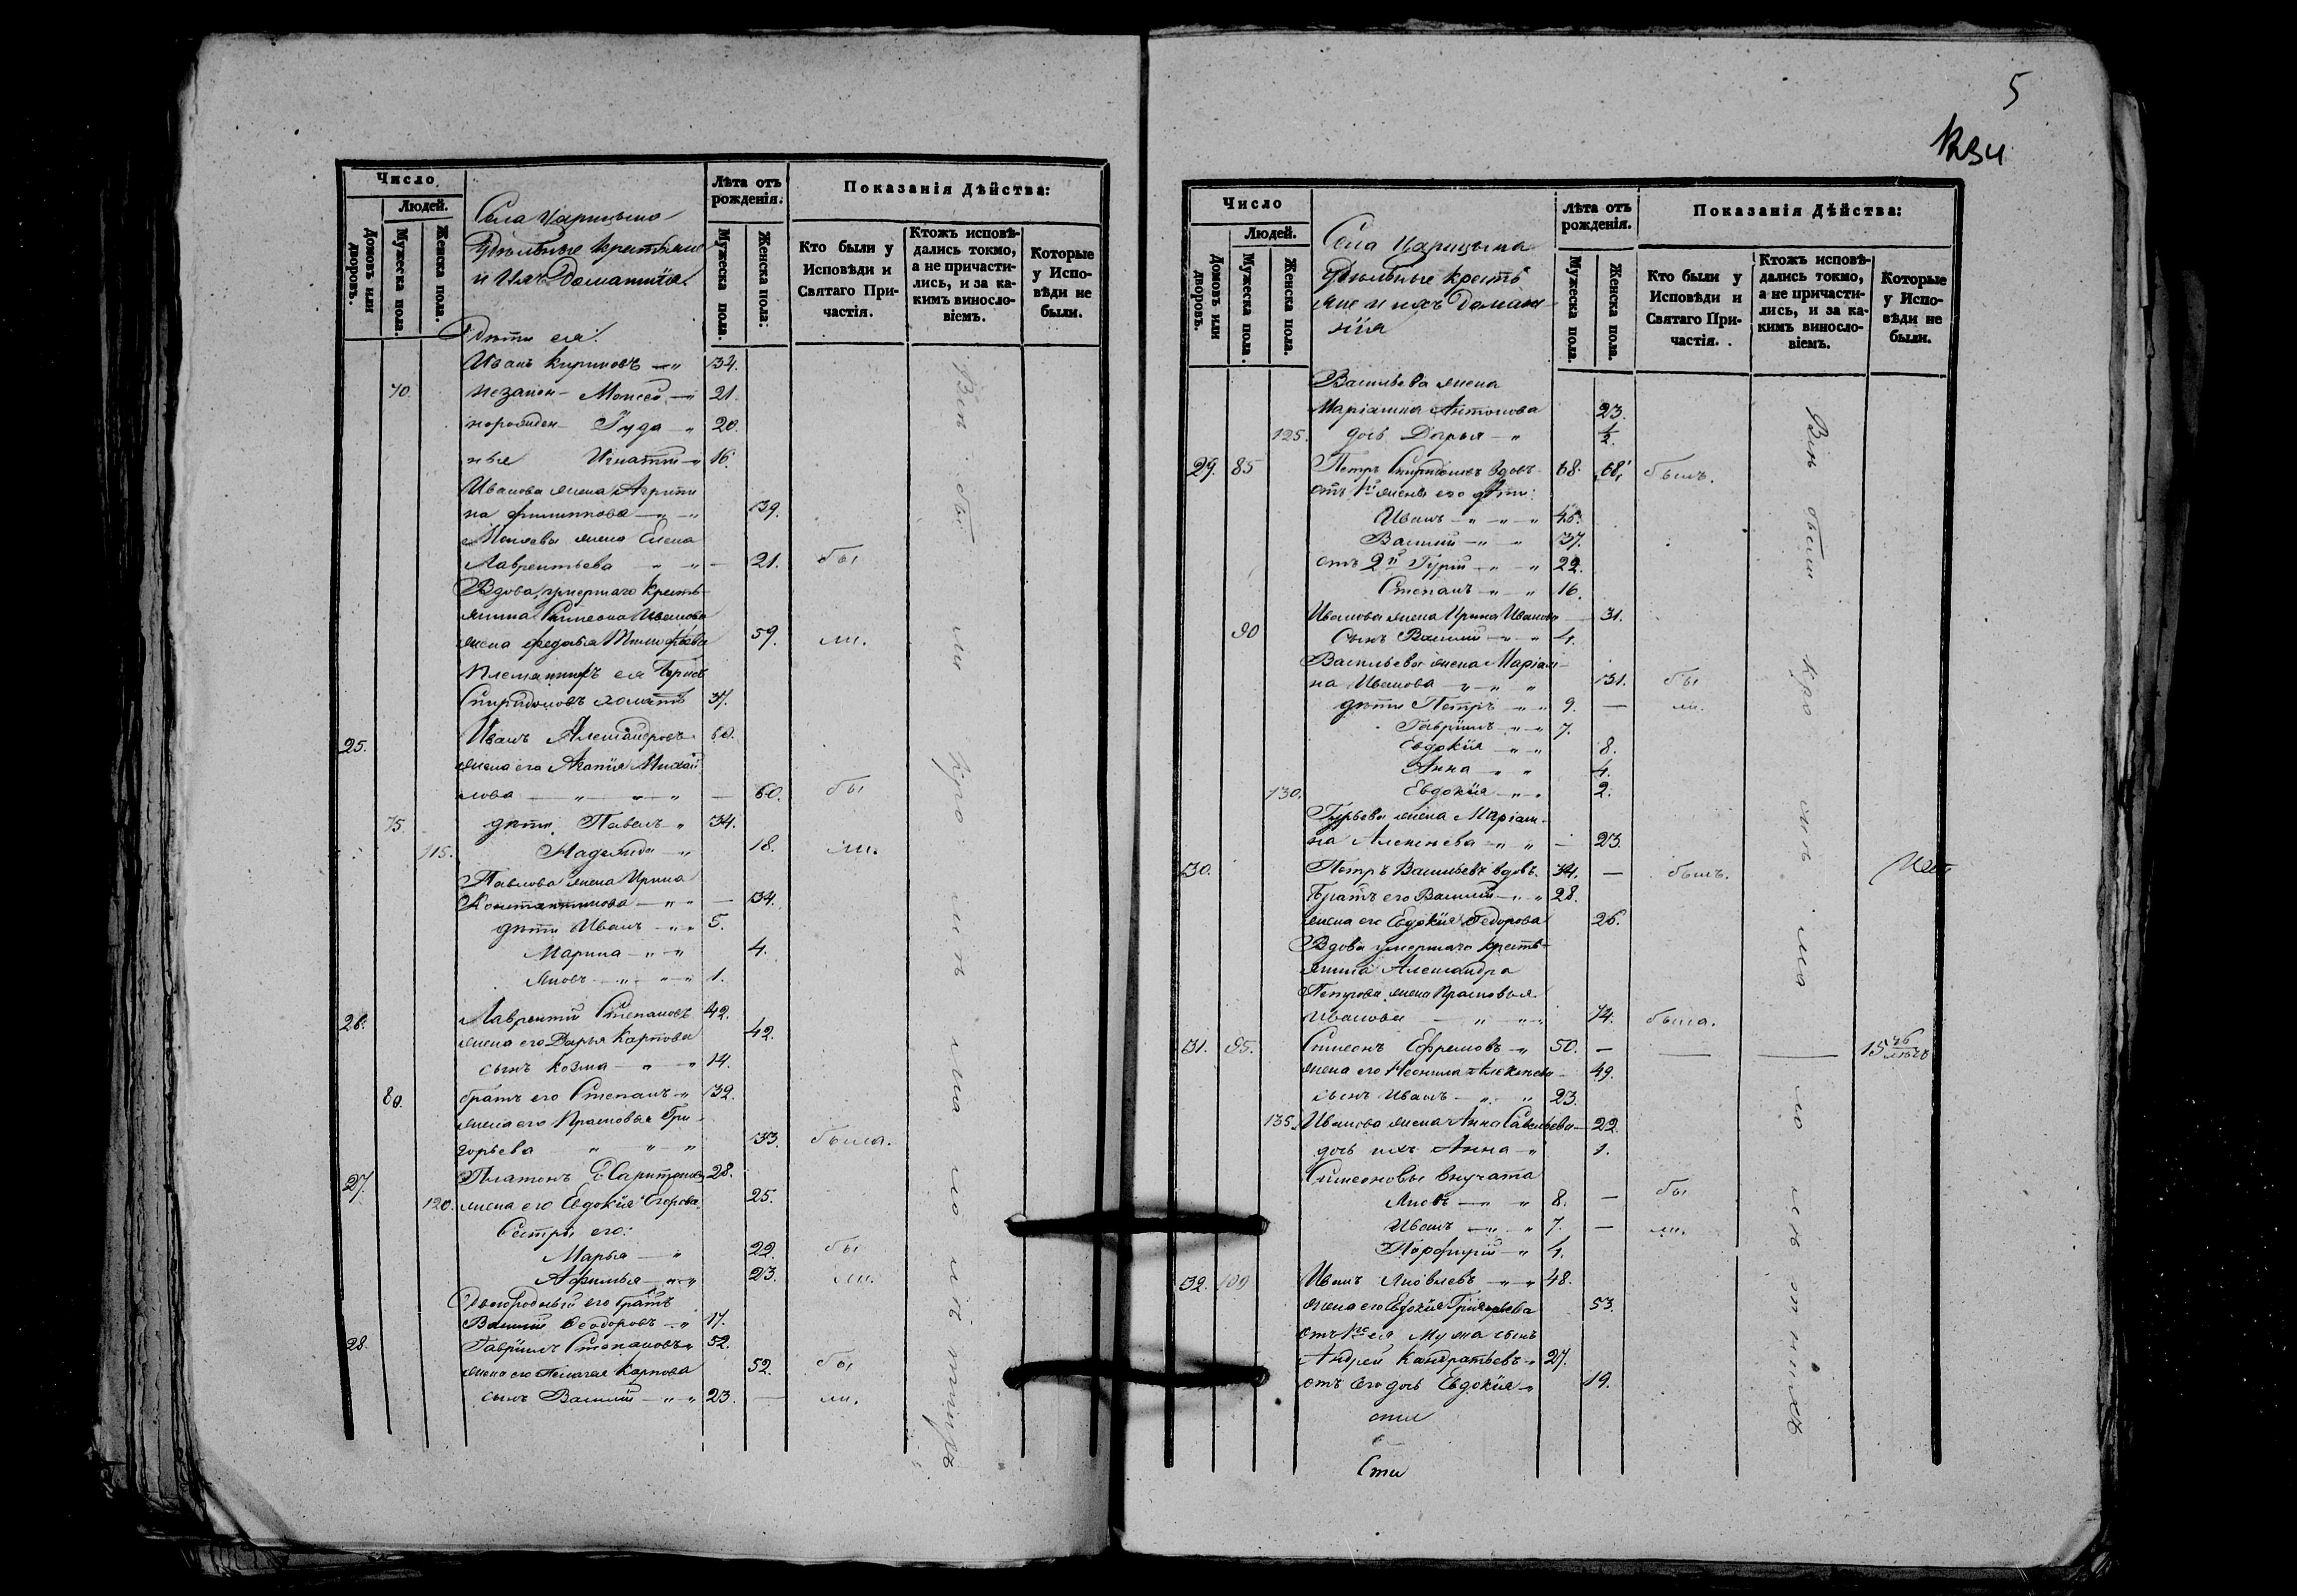 Число
Людей.
Домовъ или дворовъ.
Мужеска пола.
Женска пола.
Села Царицына
Удѣльные крестьяне
и ихъ Домашнія
Лѣта отъ рожденія.
Мужеска пола.
Женска пола:
Показанія Дѣйства:
Кто были у Исповѣди и Святаго Причастія.
Ктожъ исповѣдались токмо, а не причастились, и за какимъ винословіемъ.
Которые у Исповѣди не были.
Дѣти ея:
Иванъ Кириловъ 34.
70. незакон- Моисей 21.
норожден- Іуда 20.
ные Игнатій 16.
Иванова жена Агрипи
на Филиппова 39.
Моисеева жена Елена
Лаврентьева 21. бы
Вдова, умершаго кресть-
янина Симеона Иванова
жена Федосья Тимофѣева 59. ли.
Племянникъ ея Борисъ
Спиридоновъ холостъ 37.
25. Иванъ Александровъ 60.
жена его Агапія Михай
лова 60. бы
75. дѣти Павелъ 34.
115. Надежда 18. ли.
Павлова жена Ирина
Константинова 34.
дѣти Иванъ 5.
Марина 4.
Яковъ 1.
26. Лаврентій Степановъ 42.
жена его Дарья Карпова 42.
сынъ Козма 14.
80. братъ его Степанъ 39.
жена его Прасковья Гри-
горьева 33. была.
27. Платонъ Харитоновъ 28.
120. жена его Евдокія Егорова 25.
Сестры его:
Марья 22. бы
Афимья 23. ли.
Двоюродный его братъ
Василій Ѳеодоровъ 17.
28. Гавріилъ Степановъ 52.
жена его Пелагея Карпова 52. бы
сынъ Василій 23. ли.
5
Число
Людей.
Домовъ или дворовъ.
Мужеска пола.
Женска пола.
Села Царицына
Удѣльные кресть
яне и ихъ Домаш
нія
Лѣта отъ рожденія.
Мужеска пола.
Женска пола.
Показанія Дѣйства:
Кто были у Исповѣди и Святаго Причастія.
Ктожъ исповѣдались токмо, а не причастились, и за какимъ винословіемъ.
Которые у Исповѣди не были.
Васильева жена
Маріамна Антонова 23.
125. дочь Дарья ½.
29. 85 Петръ Спиридоновъ вдовъ 68. 68. былъ.
отъ 1й жены его дѣти:
Иванъ 45.
Василій 37.
отъ 2й Гурій 22.
Степанъ 16.
Иванова жена Ирина Иванова 31.
90 Сынъ Василій 4.
Васильева жена Маріам-
на Иванова 31. бы
дѣти Петръ 9. ли.
Гавріилъ 7.
Евдокія 8.
Анна 4.
130. Евдокія 2.
Гурьева жена Маріам-
на Алексѣева 23.
30. Петръ Васильевъ вдовъ. 34. былъ.
Братъ его Василій 28.
жена его Евдокія Ѳедорова 26.
Вдова умершаго кресть-
янина Александра
Петрова жена Прасковья
Иванова 74. была.
31. 95. Симеонъ Ефремовъ 50. 15
жена его Неонила Алексѣева 49.
сынъ Иванъ 23.
135. Иванова жена Анна Савельева 22.
дочь ихъ Анна 1.
Симеоновы внучата
Яковъ 8. бы
Иванъ 7. ли.
Порфирій 4.
32. 100 Иванъ Яковлевъ 48.
жена его Евдокія Григорьева 53.
отъ 1го ея мужа сынъ
Андрей Кондратьевъ 27.
отъ его дочь Евдокія 19.